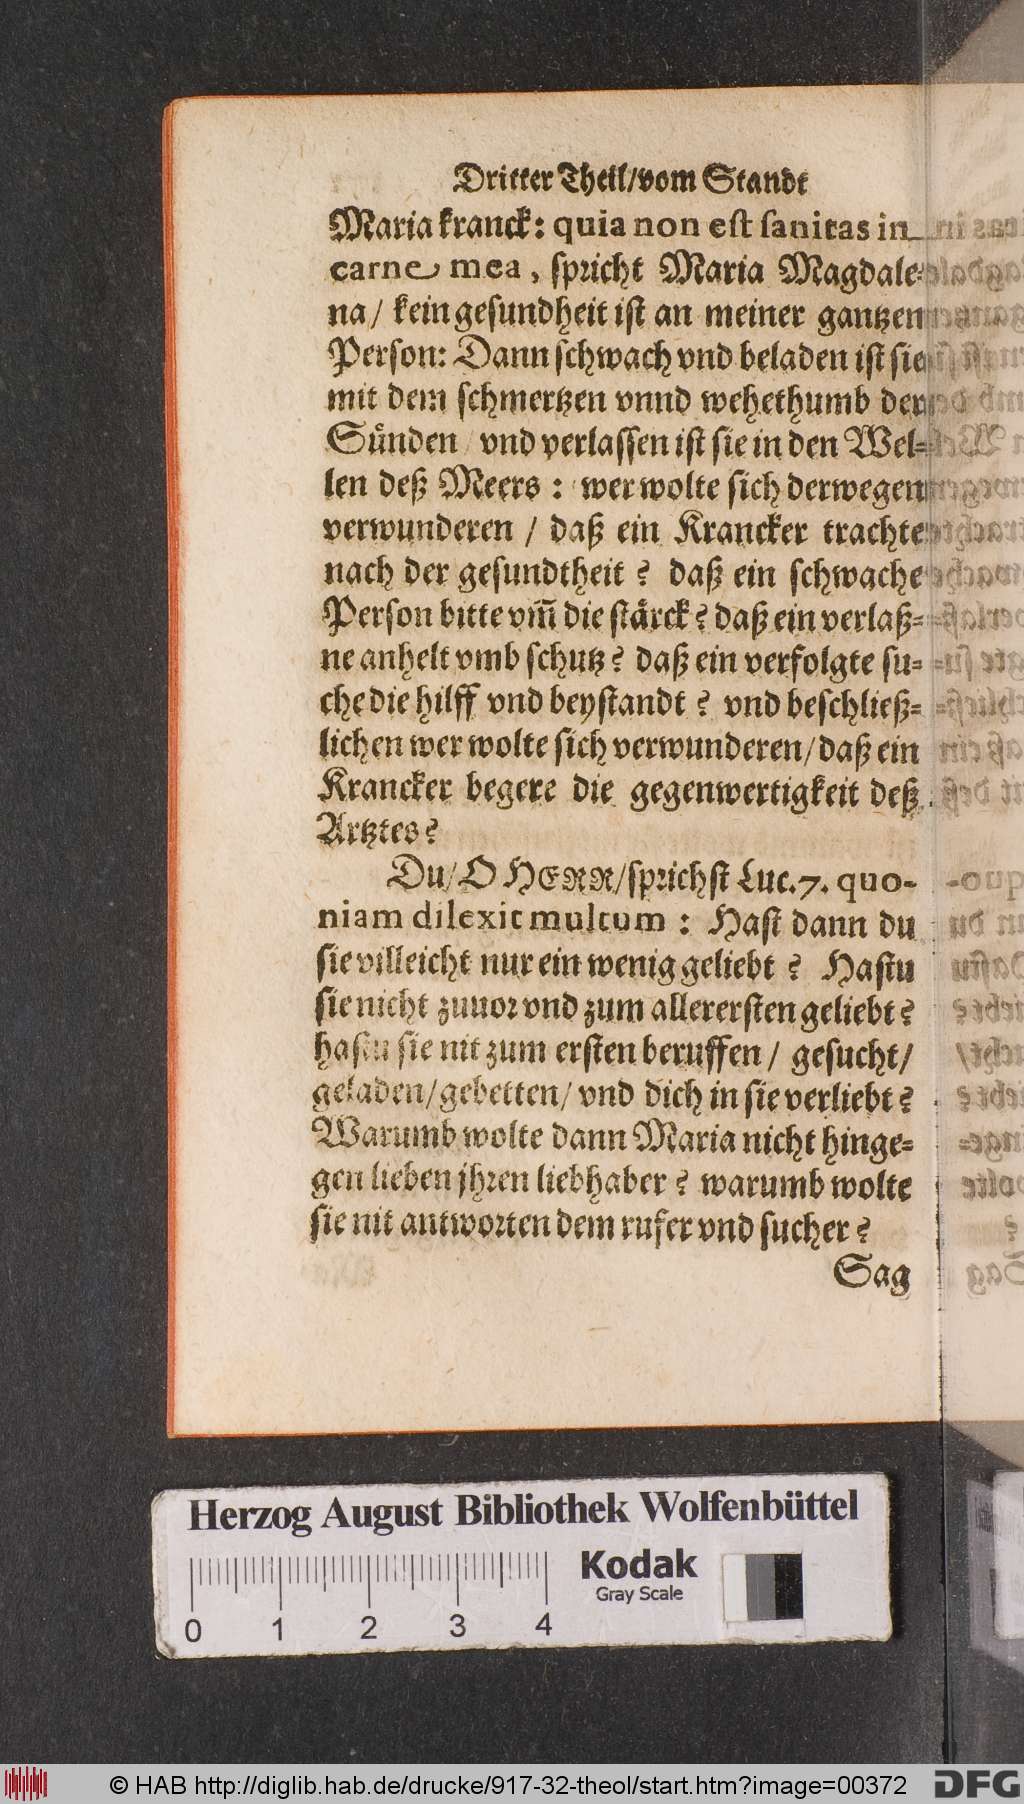 Dritter Theil/vom Standt
Maria kranck: quia non est sanitas in
carne mea, spricht Maria Magdale-
na/ kein gesundheit ist an meiner gantzen
Person: Dann schwach vnd beladen ist sie
mit dem schmertzen vnnd wehethumb der
Sünden/ vnd verlassen ist sie in den Wel-
len deß Meers: wer wolte sich derwegen
verwunderen/ daß ein Krancker trachte
nach der gesundtheit? daß ein schwache
Person bitte vm̃ die stärck? daß ein verlaß-
ne anhelt vmb schutz? daß ein verfolgte su-
che die hilff vnd beystandt? vnd beschließ-
lichen wer wolte sich verwunderen/daß ein
Krancker begere die gegenwertigkeit deß
Artztes?
Du/ O HERR/sprichst Luc.7. quo-
niam dilexit multum: Hast dann du
sie villeicht nur ein wenig geliebt? Hastu
sie nicht zuuor vnd zum allerersten geliebt?
hastu sie nit zum ersten beruffen/ gesucht/
geladen/gebetten/ vnd dich in sie verliebt?
Warumb wolte dann Maria nicht hinge-
gen lieben jhren liebhaber? warumb wolte
sie nit antworten dem rufer vnd sucher?
Sag
Herzog August Bibliothek Wolfenbüttel
Kodak
Gray Scale
0 1 2 3 4
© HAB http://diglib.hab.de/drucke/917-32-theol/start.htm?image=00372
DFG